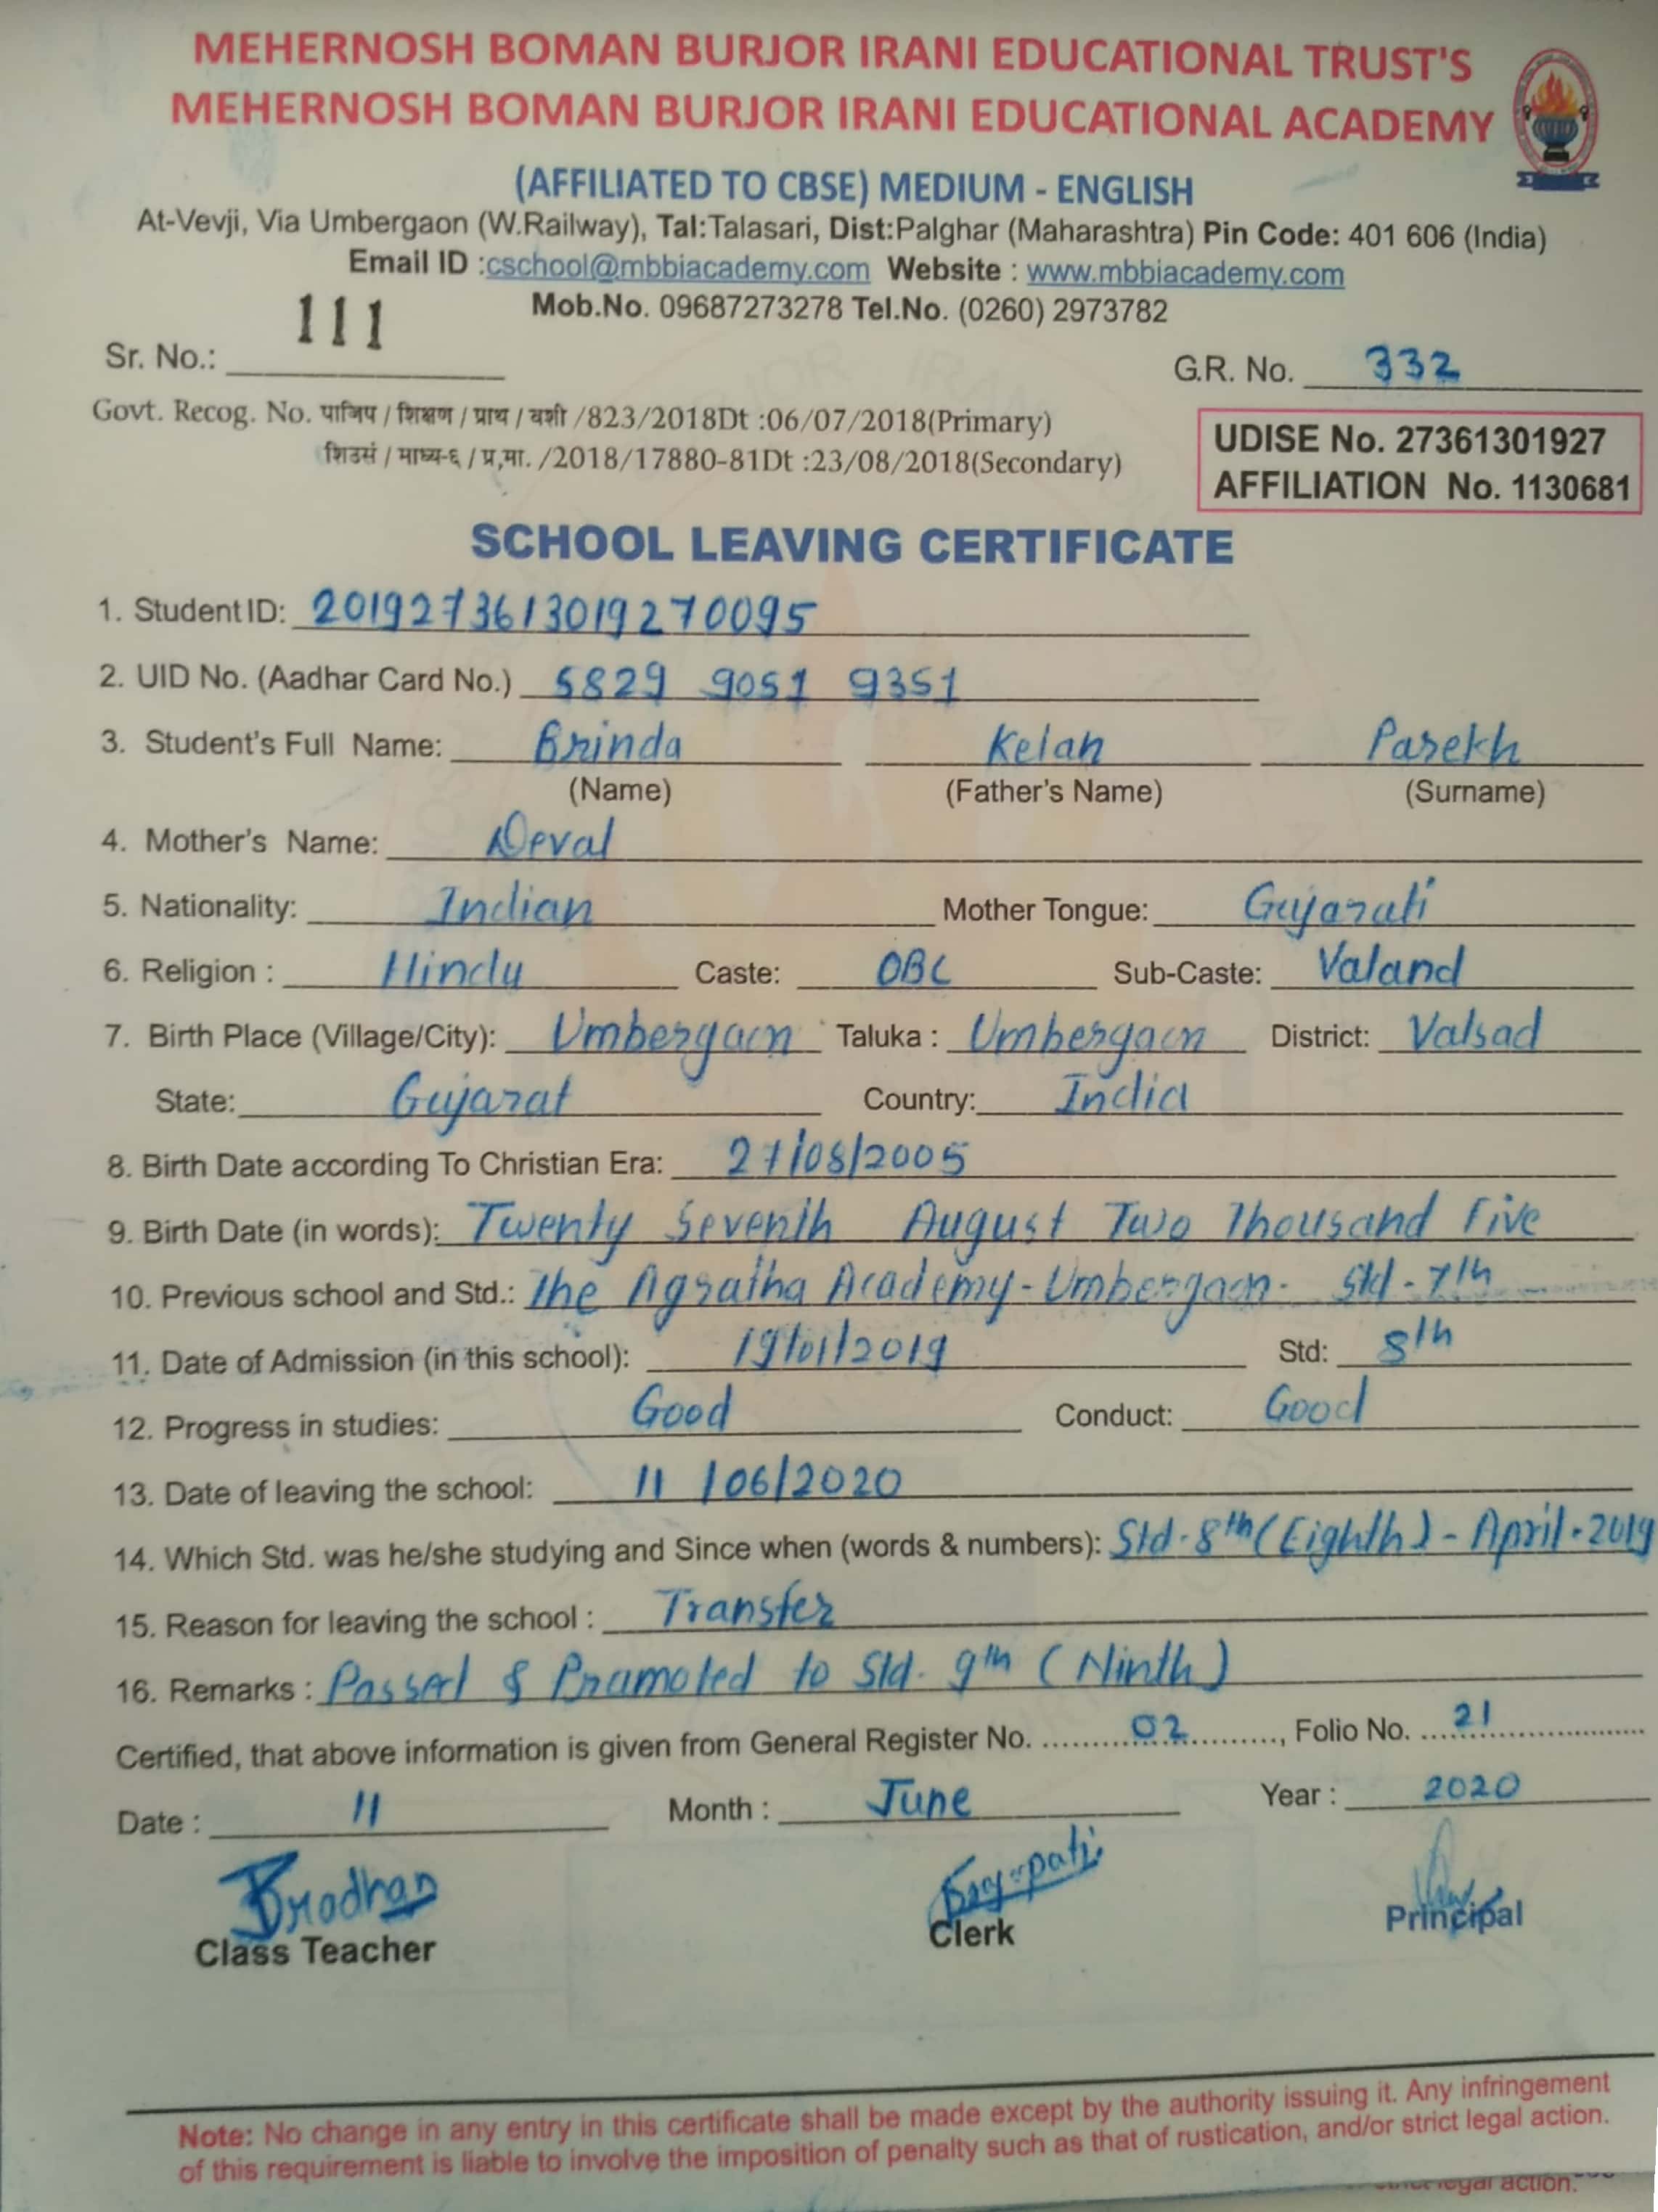 MEHERNOSH BOMAN BURJOR IRANI EDUCATIONAL TRUST'S
MEHERNOSH BOMAN BURJOR IRANI EDUCATIONAL ACADEMY
(AFFILIATED TO CBSE) MEDIUM - ENGLISH
At-Vevji, Via Umbergaon (W.Railway), Tal:Talasari, Dist:Palghar (Maharashtra) Pin Code: 401 606 (India)
Email ID :cschool@mbbiacademy.com Website : www.mbbiacademy.com
Mob.No. 09687273278 Tel.No. (0260) 2973782
Sr. No.: 111 G.R. No. 332
Govt. Recog. No. पाजिप / शिक्षण / प्राथ / वशी /823/2018Dt :06/07/2018(Primary)
शिउसं / माध्य-६ / प्र,मा. /2018/17880-81Dt :23/08/2018(Secondary)
UDISE No. 27361301927
AFFILIATION No. 1130681
SCHOOL LEAVING CERTIFICATE
1. Student ID: 2019273613019270095
2. UID No. (Aadhar Card No.) 5829 9051 9351
3. Student's Full Name: Brinda Ketan Parekh
(Name) (Father's Name) (Surname)
4. Mother's Name: Deval
5. Nationality: Indian Mother Tongue: Gujarati
6. Religion : Hindu Caste: OBC Sub-Caste: Valand
7. Birth Place (Village/City): Umbergaon Taluka : Umbergaon District: Valsad
State: Gujarat Country: India
8. Birth Date according To Christian Era: 27/08/2005
9. Birth Date (in words): Twenty Seventh August Two Thousand Five
10. Previous school and Std.: The Academy - Umbergaon - Std - 7th
11. Date of Admission (in this school): 19/01/2019 Std: 8th
12. Progress in studies: Good Conduct: Good
13. Date of leaving the school: 11 /06/2020
14. Which Std. was he/she studying and Since when (words & numbers): Std - 8th (Eighth) - April - 2019
15. Reason for leaving the school : Transfer
16. Remarks : Passed & Pramoted to Std. 9th (Ninth)
Certified, that above information is given from General Register No. 02, Folio No. 21
Date : 11 Month : June Year : 2020
Class Teacher Clerk Principal
Note: No change in any entry in this certificate shall be made except by the authority issuing it. Any infringement
of this requirement is liable to involve the imposition of penalty such as that of rustication, and/or strict legal action.
legal action.